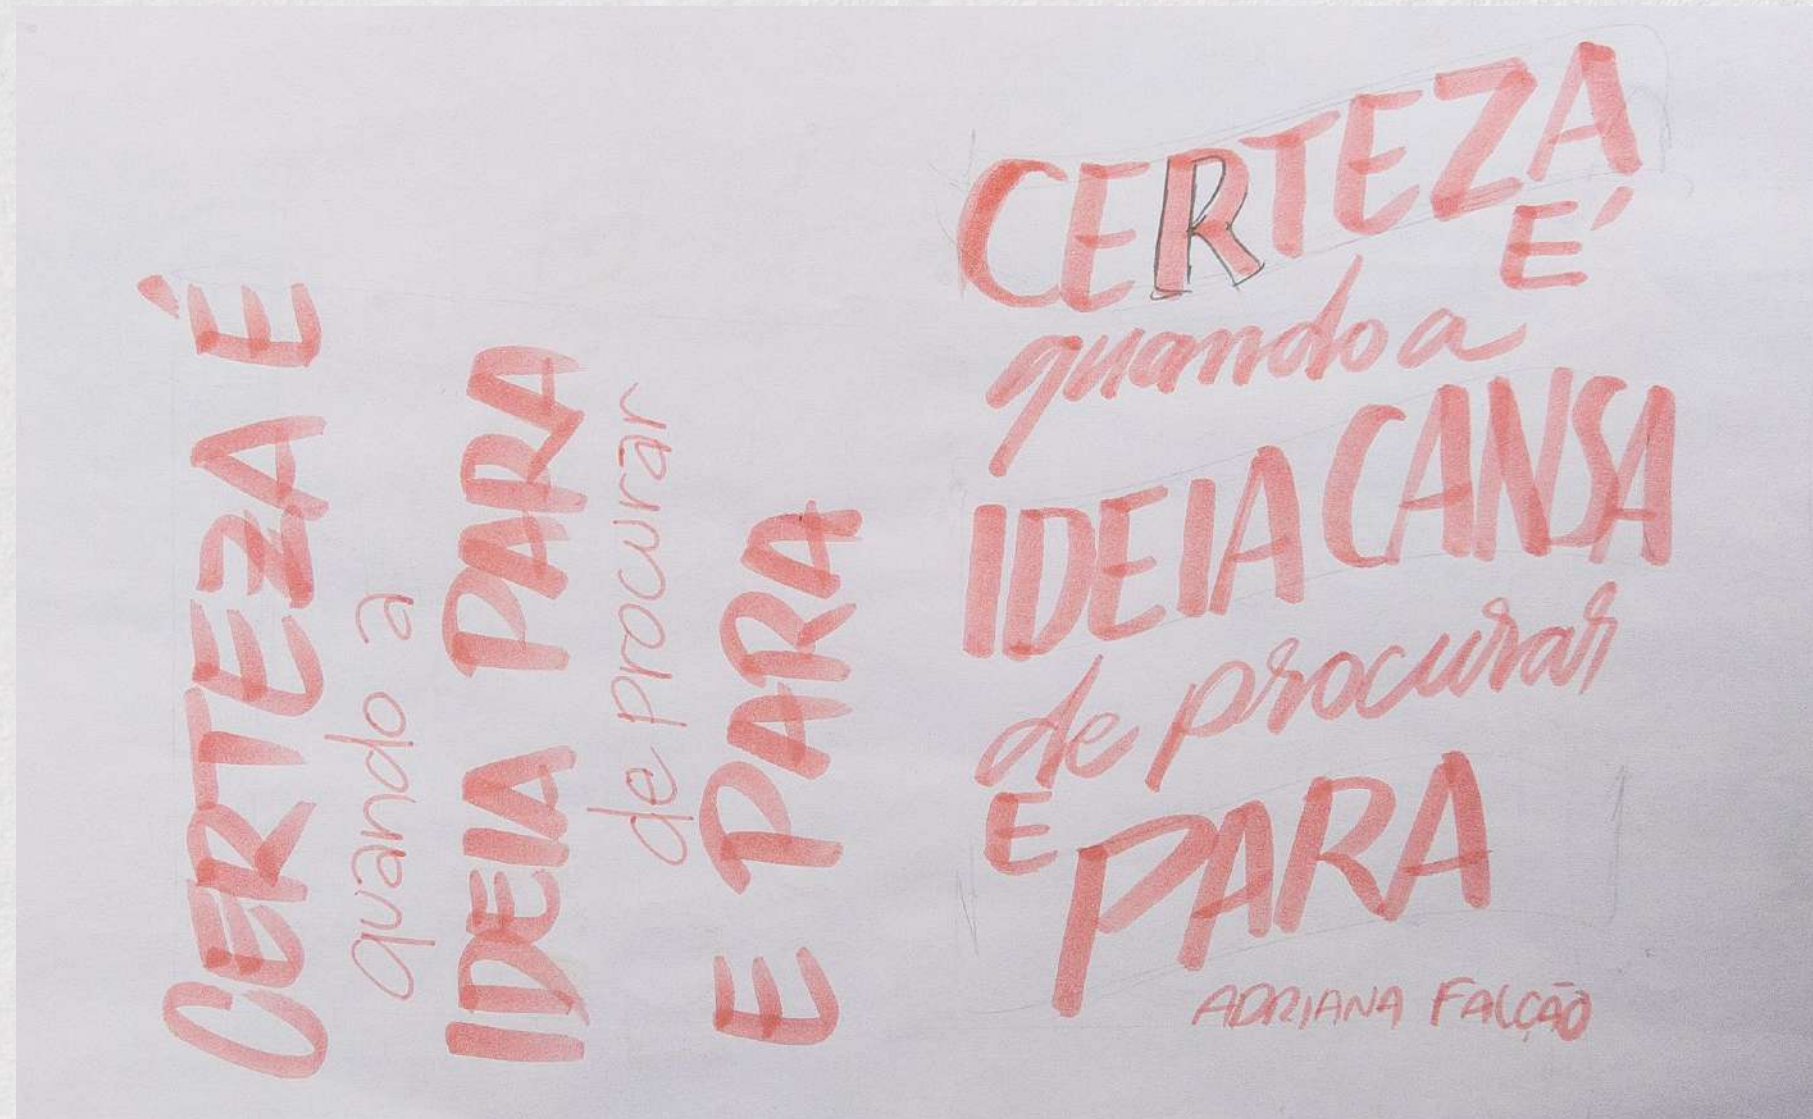 CERTEZA É
quando a
IDEIA PARA
de procurar
E PARA
CERTEZA
É
quando a
IDEIA CANSA
de procurar
E PARA
ADRIANA FALCÃO